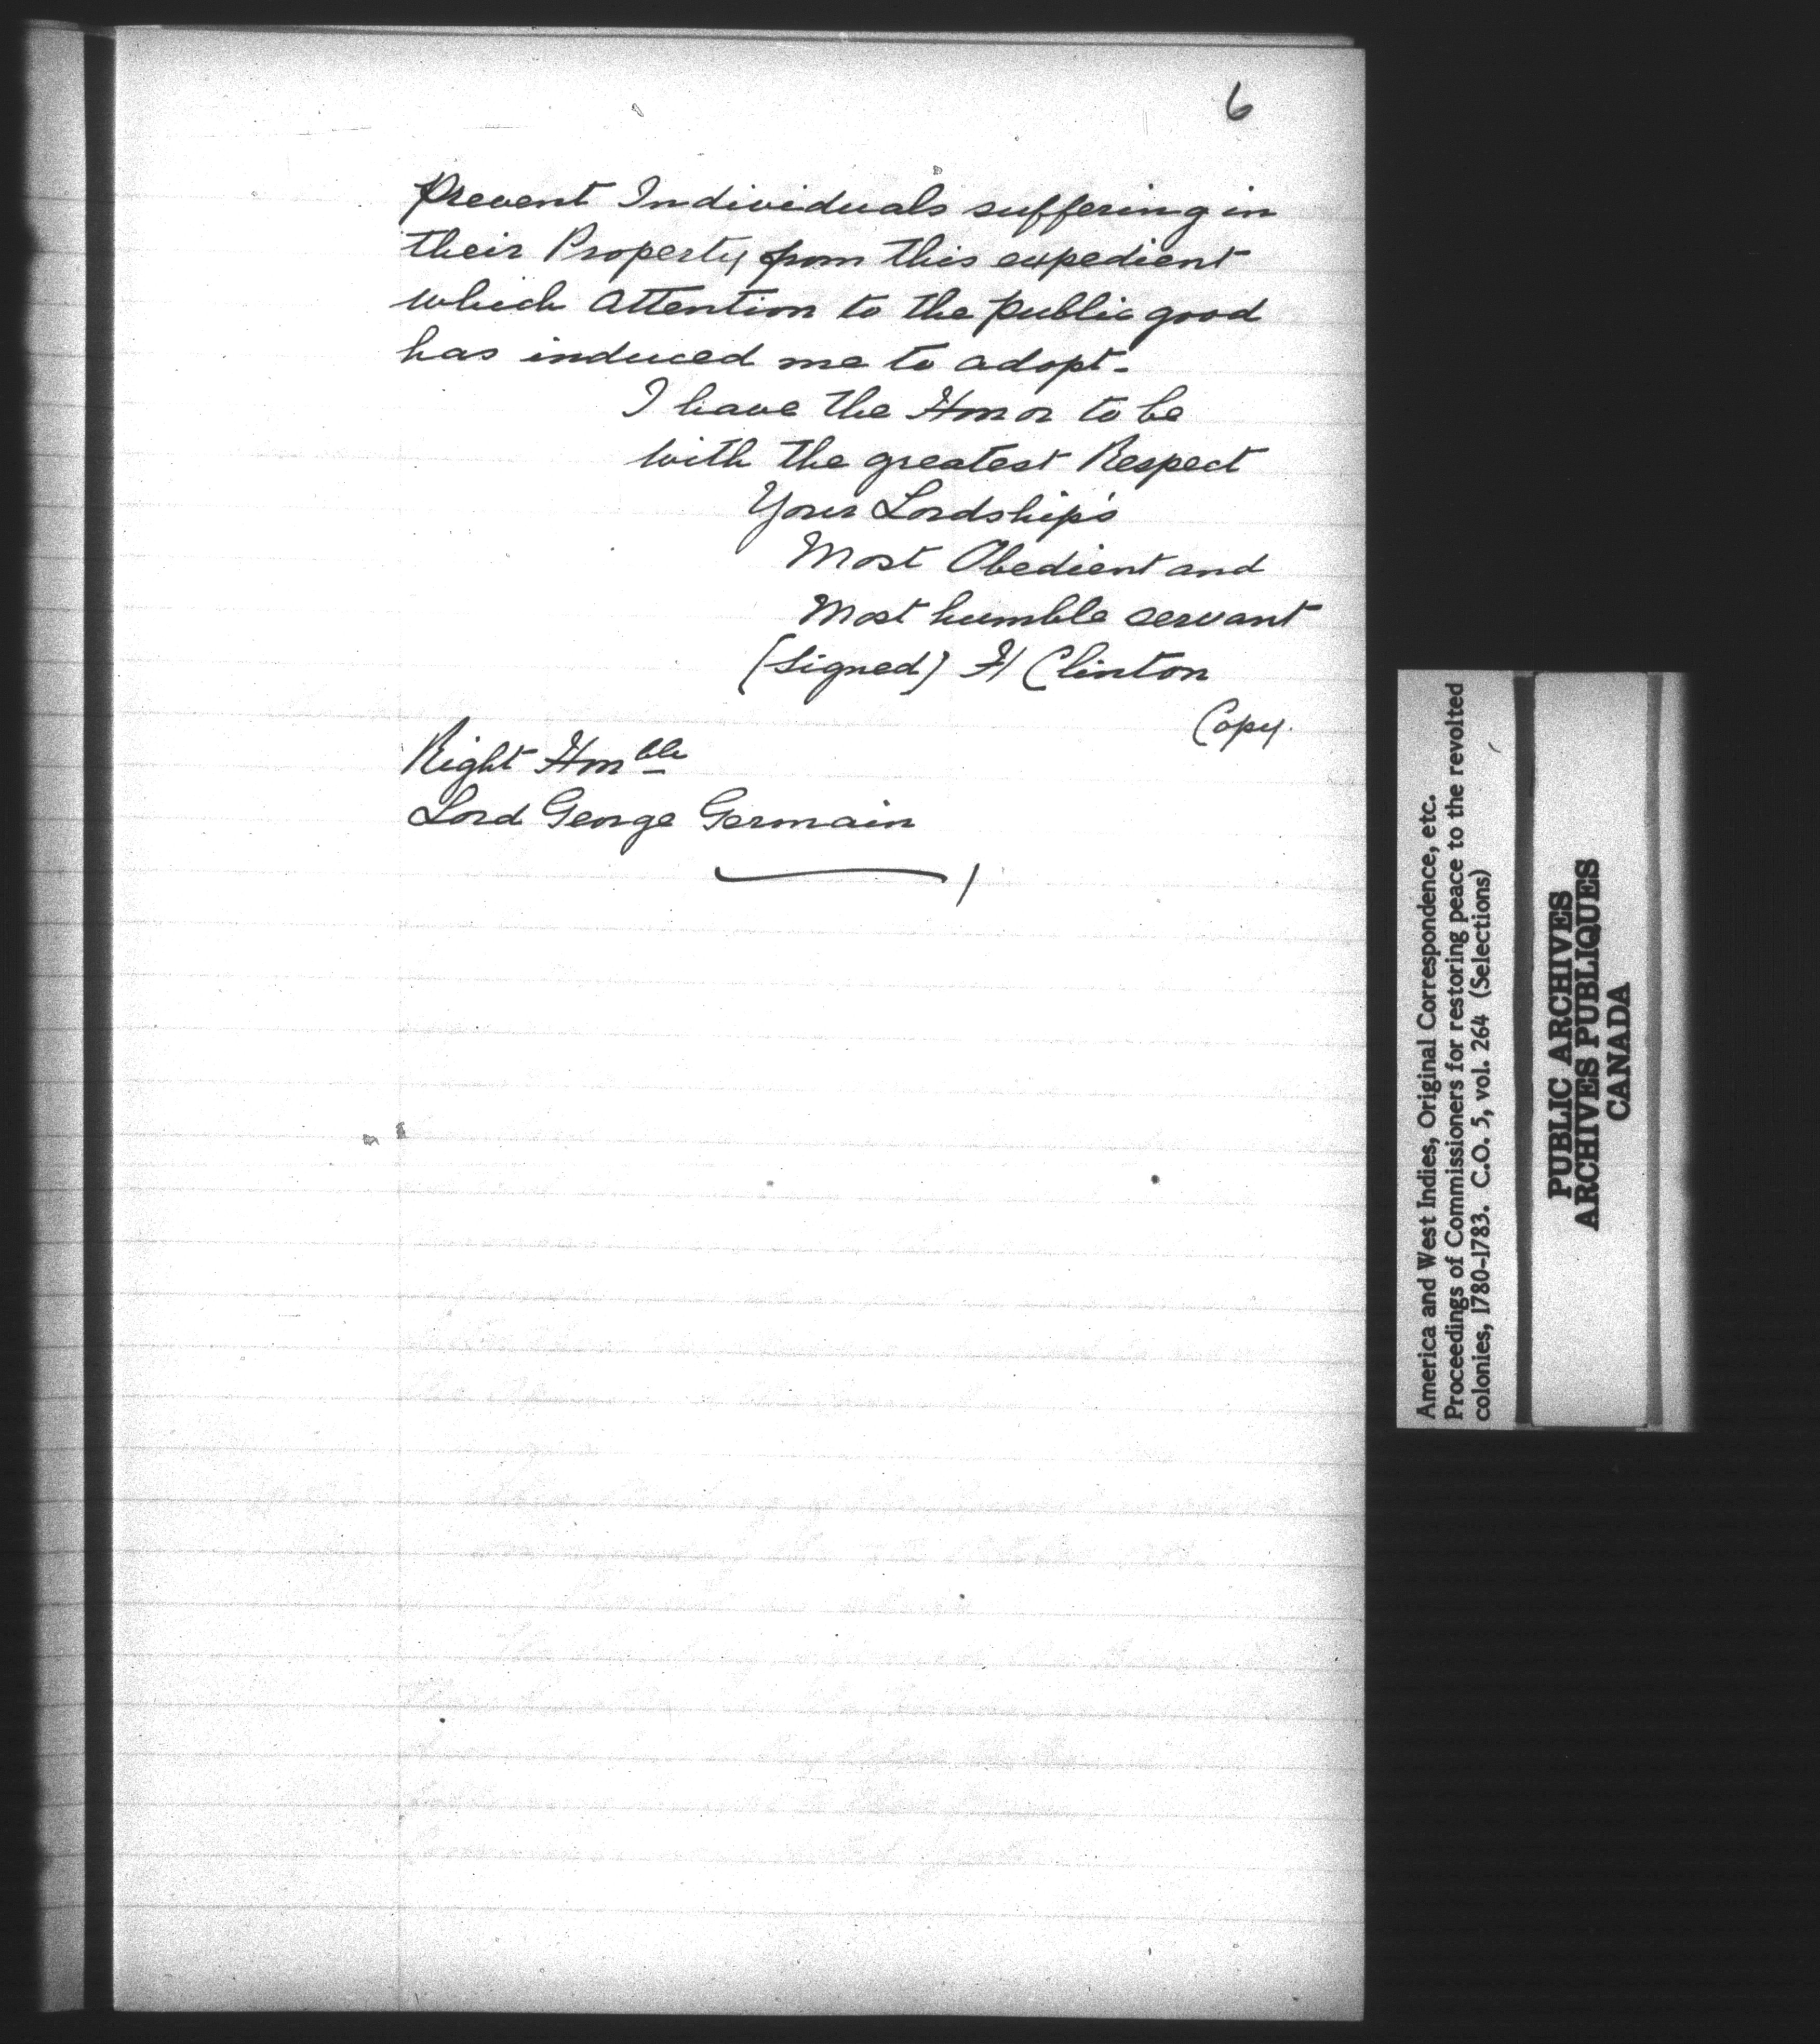 6
Prevent Individuals suffering in
their Property from this expedient
which Attention to the public good
has induced me to adopt.
I have the Honor to be
with the greatest Respect
Your Lordship's
Most Obedient and
Most humble servant
(signed) H Clinton
Copy.
Right Honble
Lord George Germain
America and West Indies, Original Correspondence, etc.
Proceedings of Commissioners for restoring peace to the revolted
colonies, 1780-1783. C.O. 5, vol. 264 (Selections)
PUBLIC ARCHIVES
ARCHIVES PUBLIQUES
CANADA